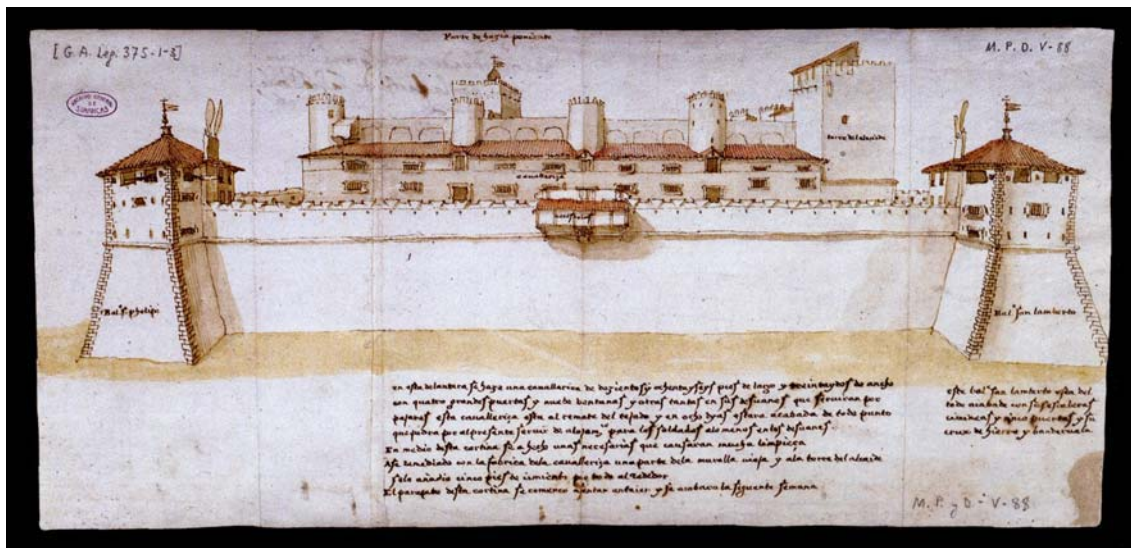 [G. A. Leg. 375-1-3]
Parte de hazia poniente
M. P. D. V-88
ARCHIVO GENERAL
DE
SIMANCAS
torre del alcaide
cavalleriza
Bal.e S. phelipe
Bal.e san lamberto
en esta delantera se haze una cavalleriza de dozientos y ochenta y seys pies de largo y treinta y dos de ancho
con quatro grandes puertas y nueve ventanas y otras tantas en sus desvanes que serviran por
pajares esta cavalleriza esta al remate del tejado y en ocho dyas estara acabada de todo punto
que podra por al presente servir de alojam.to para los soldados alo menos en los desvanes.
En medio desta cortina se a hecho unas necesarias que causaran mucha limpieza
Ase remediado con la fabrica dela cavalleriza una parte dela muralla vieja y ala torre del alcaide
sele añadio cinco pies de cimiento por todo al rededor
El parapeto desta cortina se començo asentar antaier y se acabara la siguente semana
este bal.e san lamberto esta del
todo acabado con sus
chimeneas y puertas y su
cruz de hierro y banderuela
M. P. y D. V-88